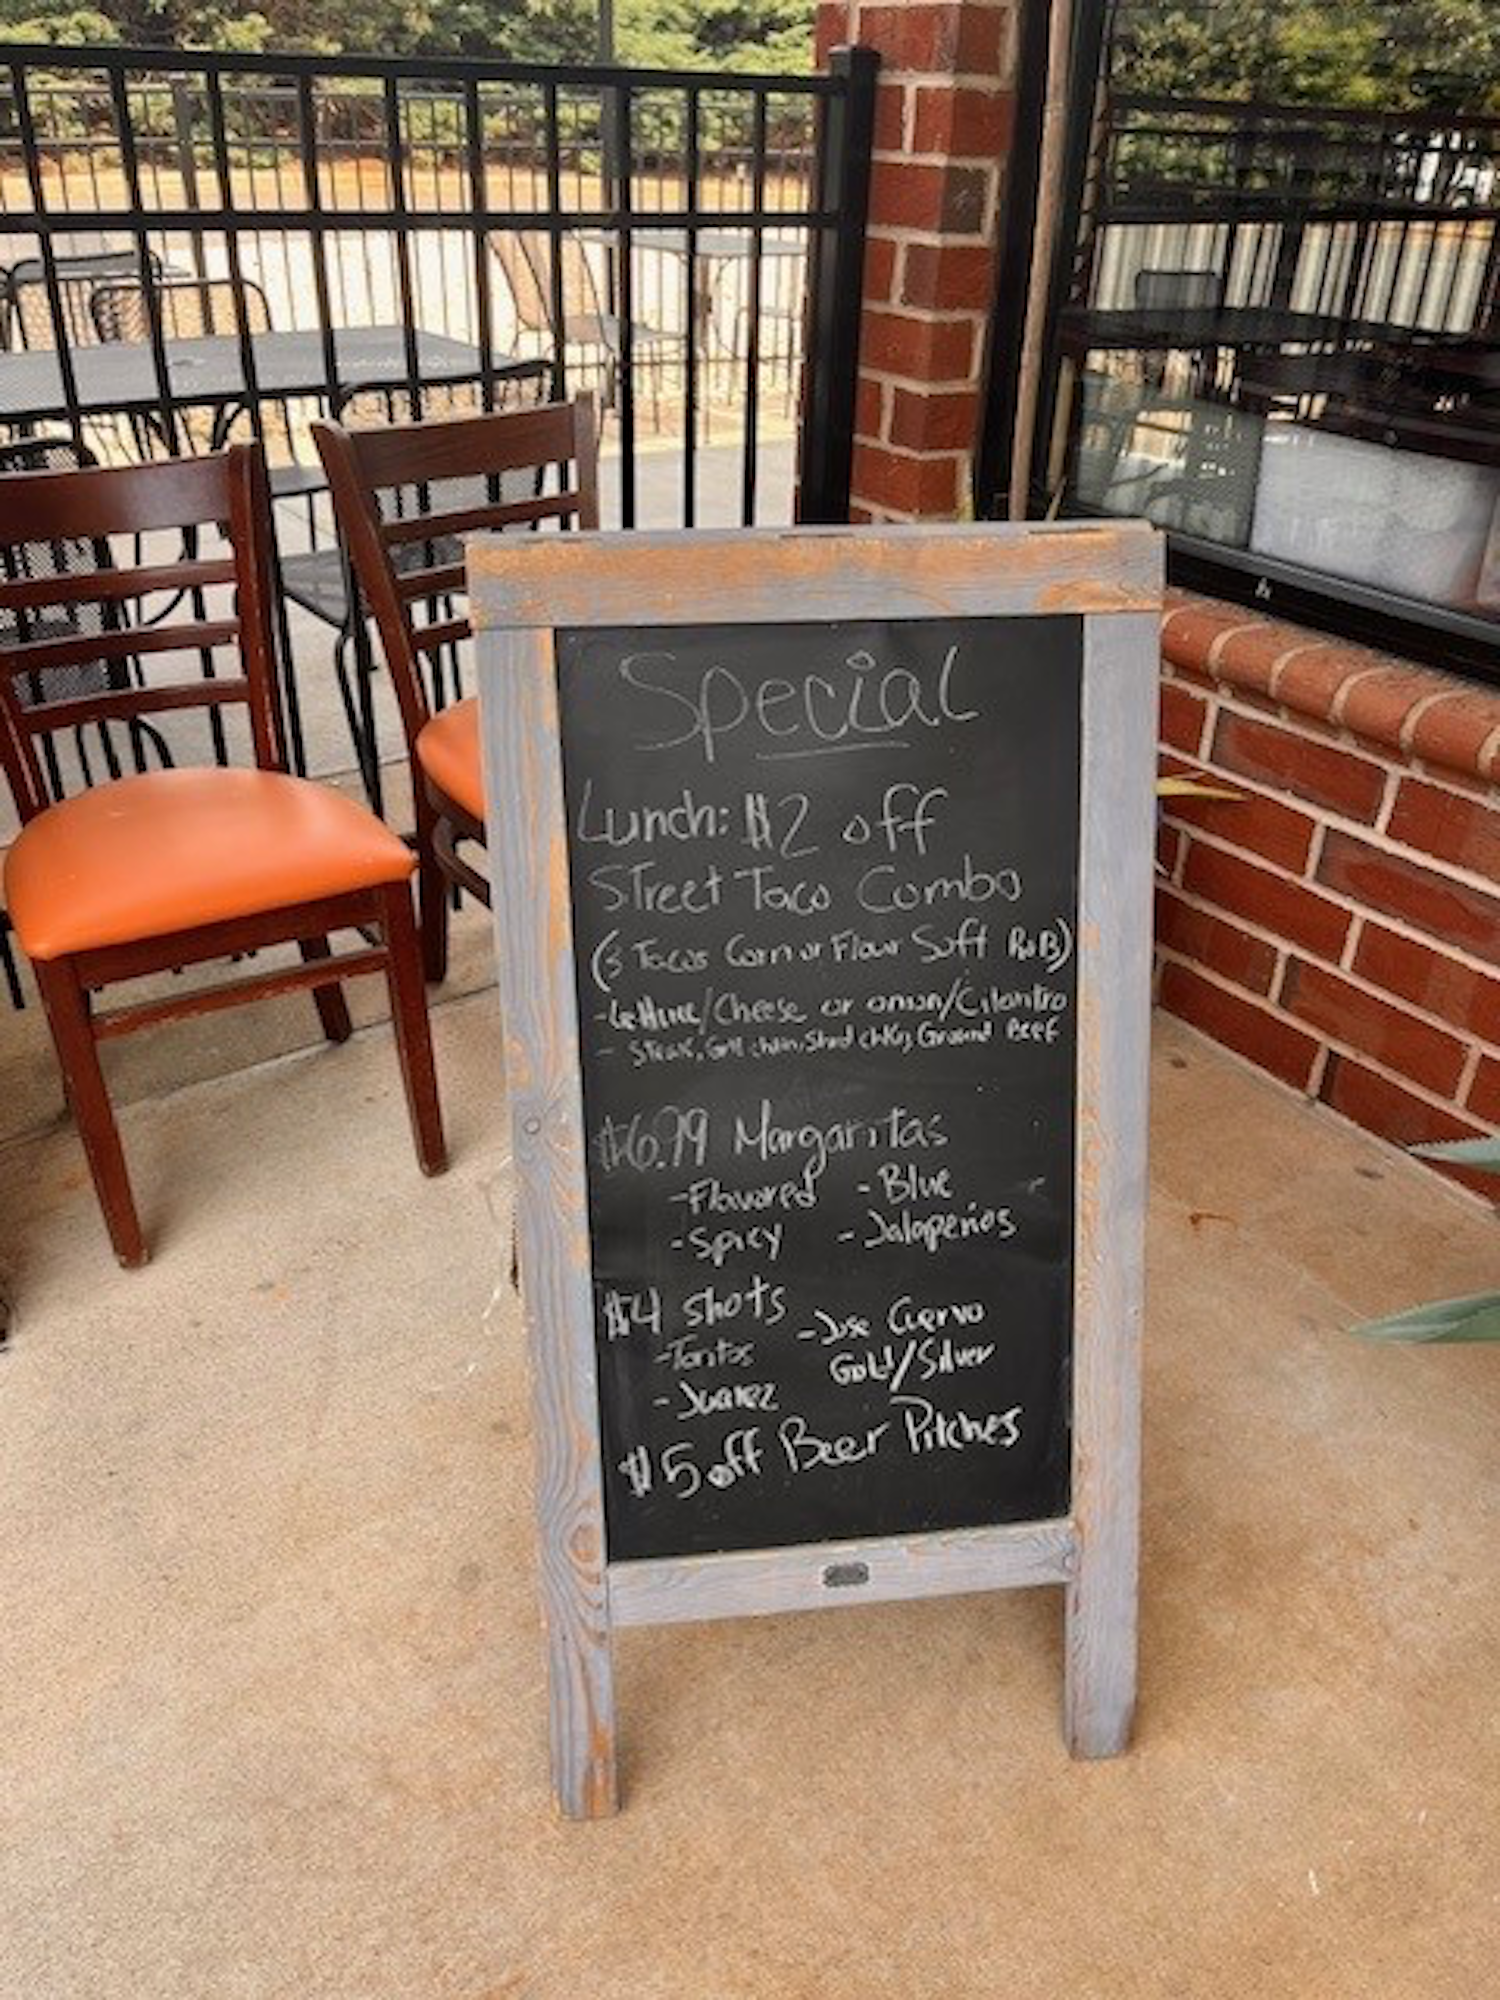 Special
Lunch: $2 off
Street Taco Combo
(3 Tacos Corn or Flour Soft R&B)
-Lettuce/Cheese or onion/Cilantro
- Steak, Grill chkn, Shred chkn, Ground Beef
$6.99 Margaritas
-Flavored -Blue
-Spicy -Jalapeños
$4 shots
-Jose Cuervo
-Tantos
Gold/Silver
-Juarez
$5 off Beer Pitches